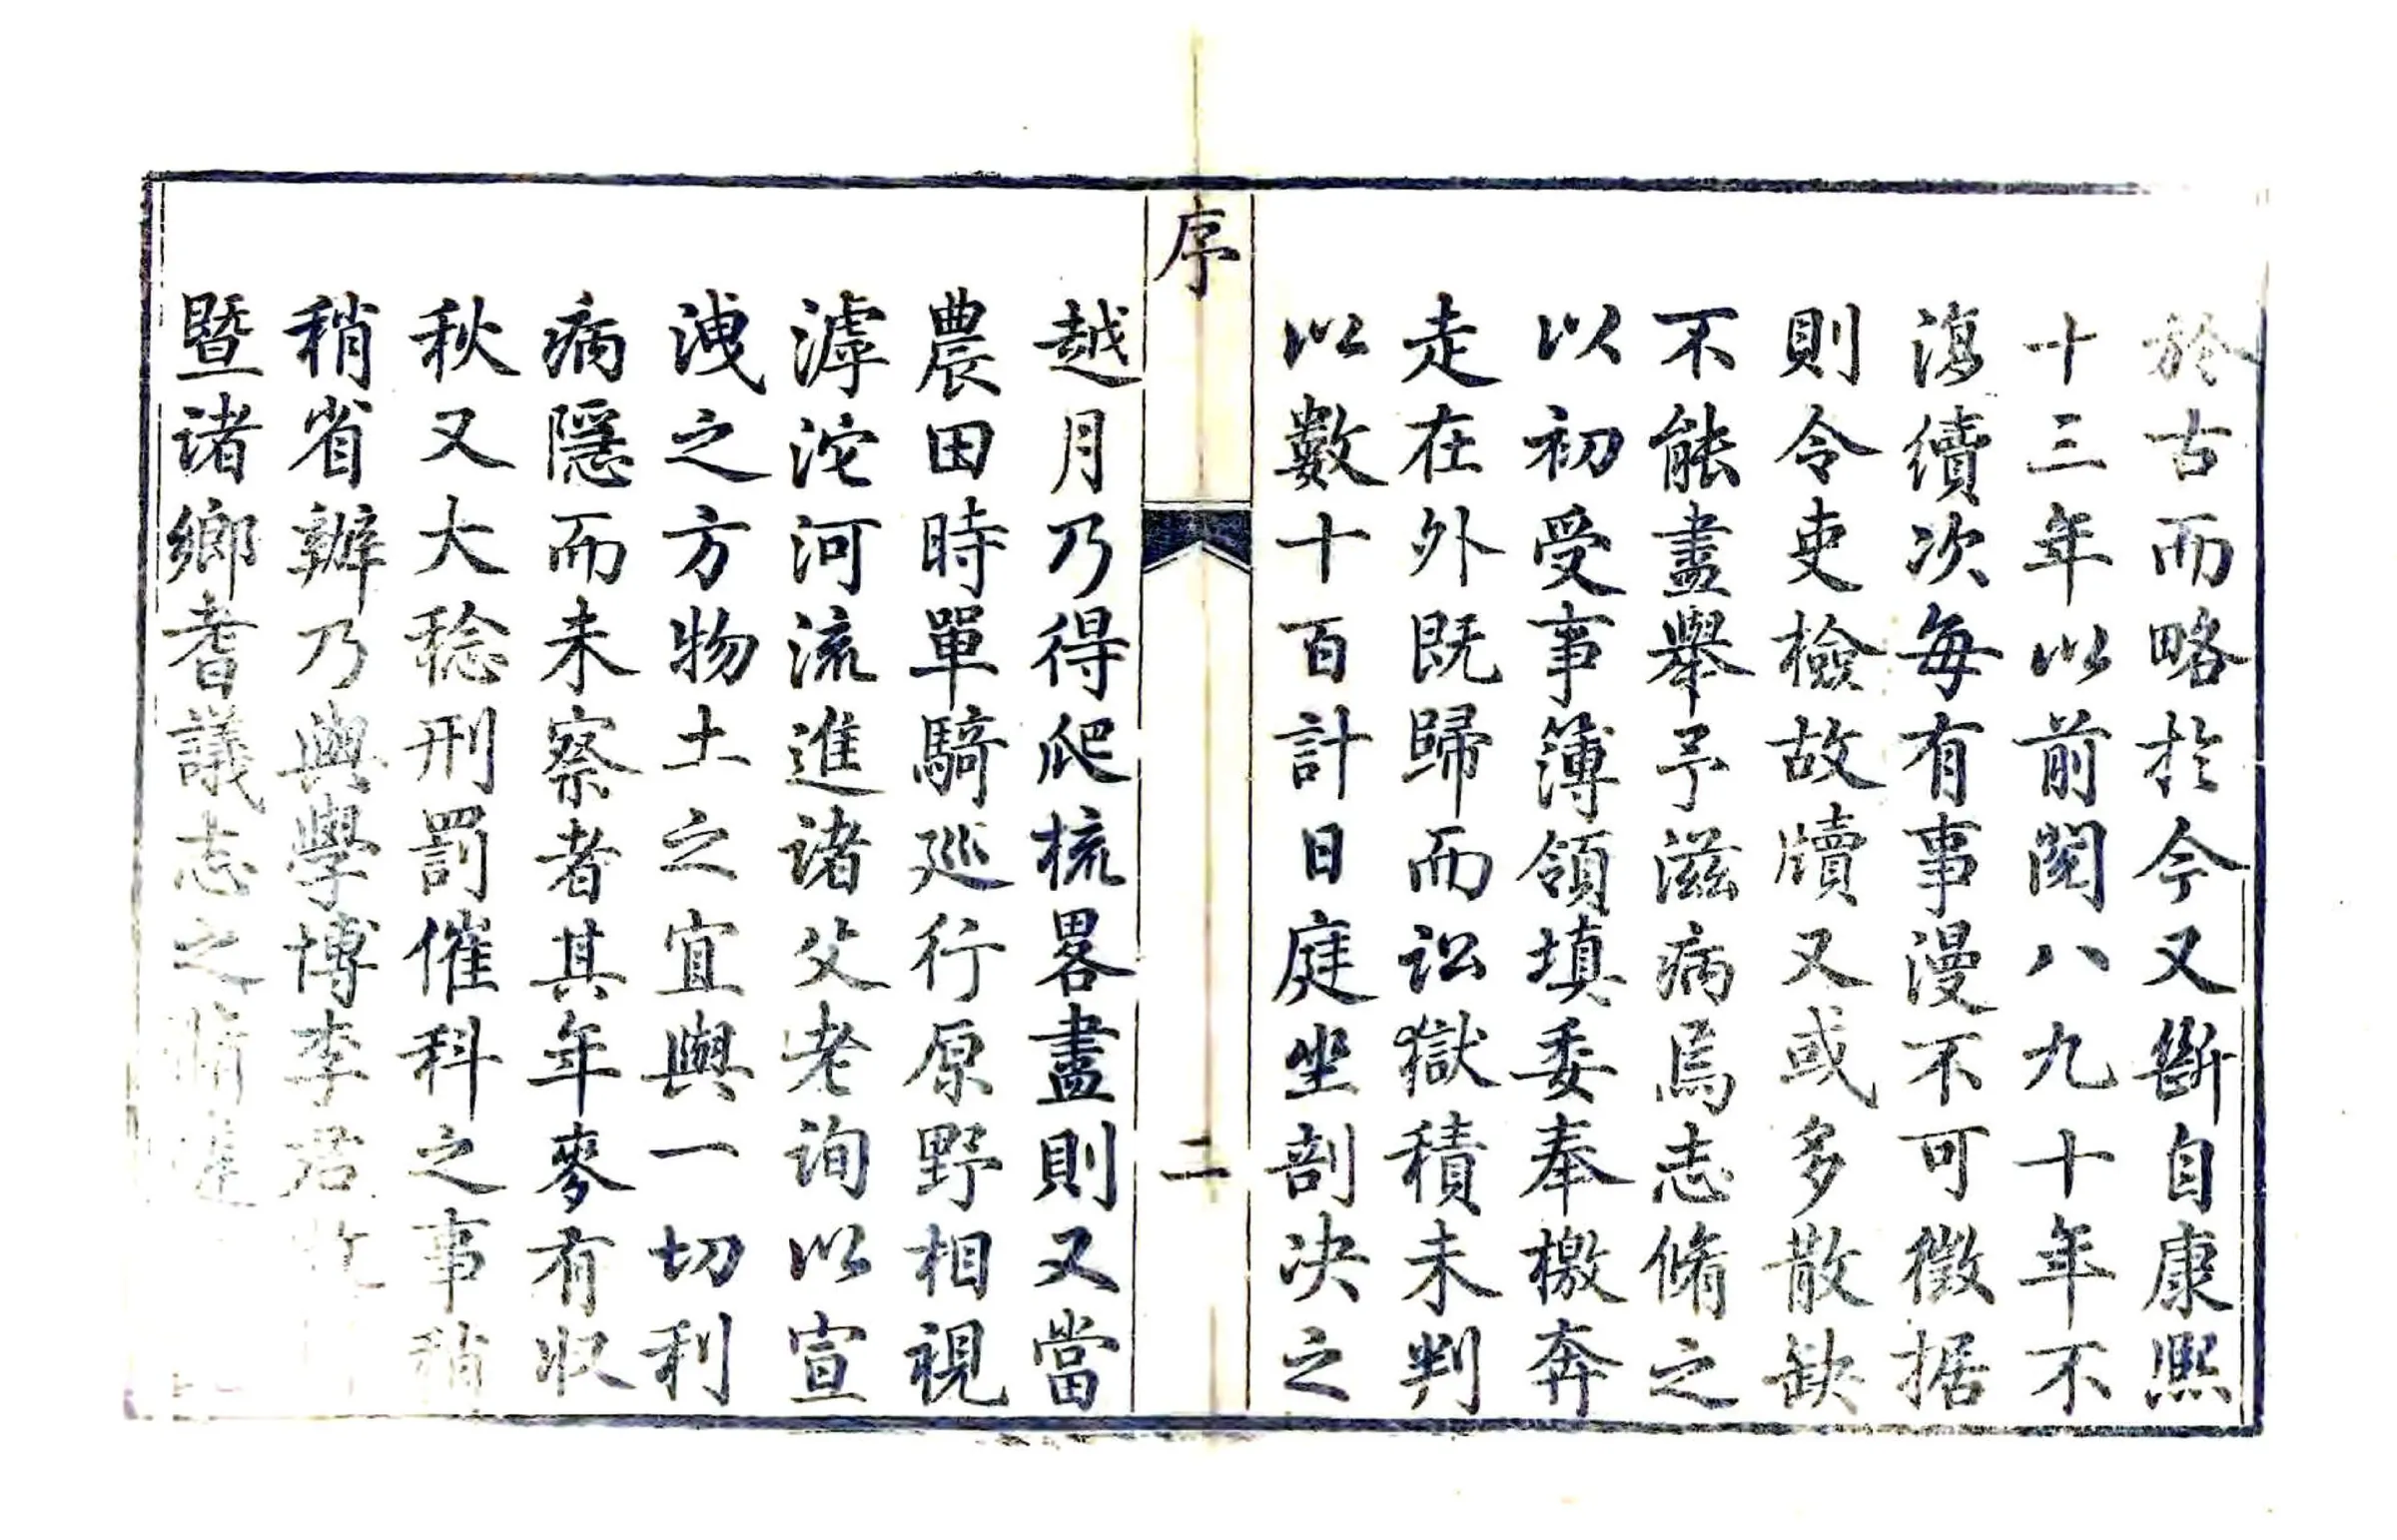 於古而略於今又斷自康熙
十三年以前閱八九十年不
復續次每有事漫不可徵据
則令吏檢故牘又或多散缺
不能盡舉予滋病焉志脩之
以初受事簿領填委奉檄奔
走在外既歸而訟獄積未判
以數十百計日庭坐剖决之
序
二
越月乃得爬梳畧盡則又當
農田時單騎廵行原野相視
滹沱河流進诸父老询以宣
洩之方物土之宜與一切利
病隱而未察者其年麥有收
秋又大稔刑罰催科之事稍
稍省辦乃與學博李君
暨诸鄉耆議志之